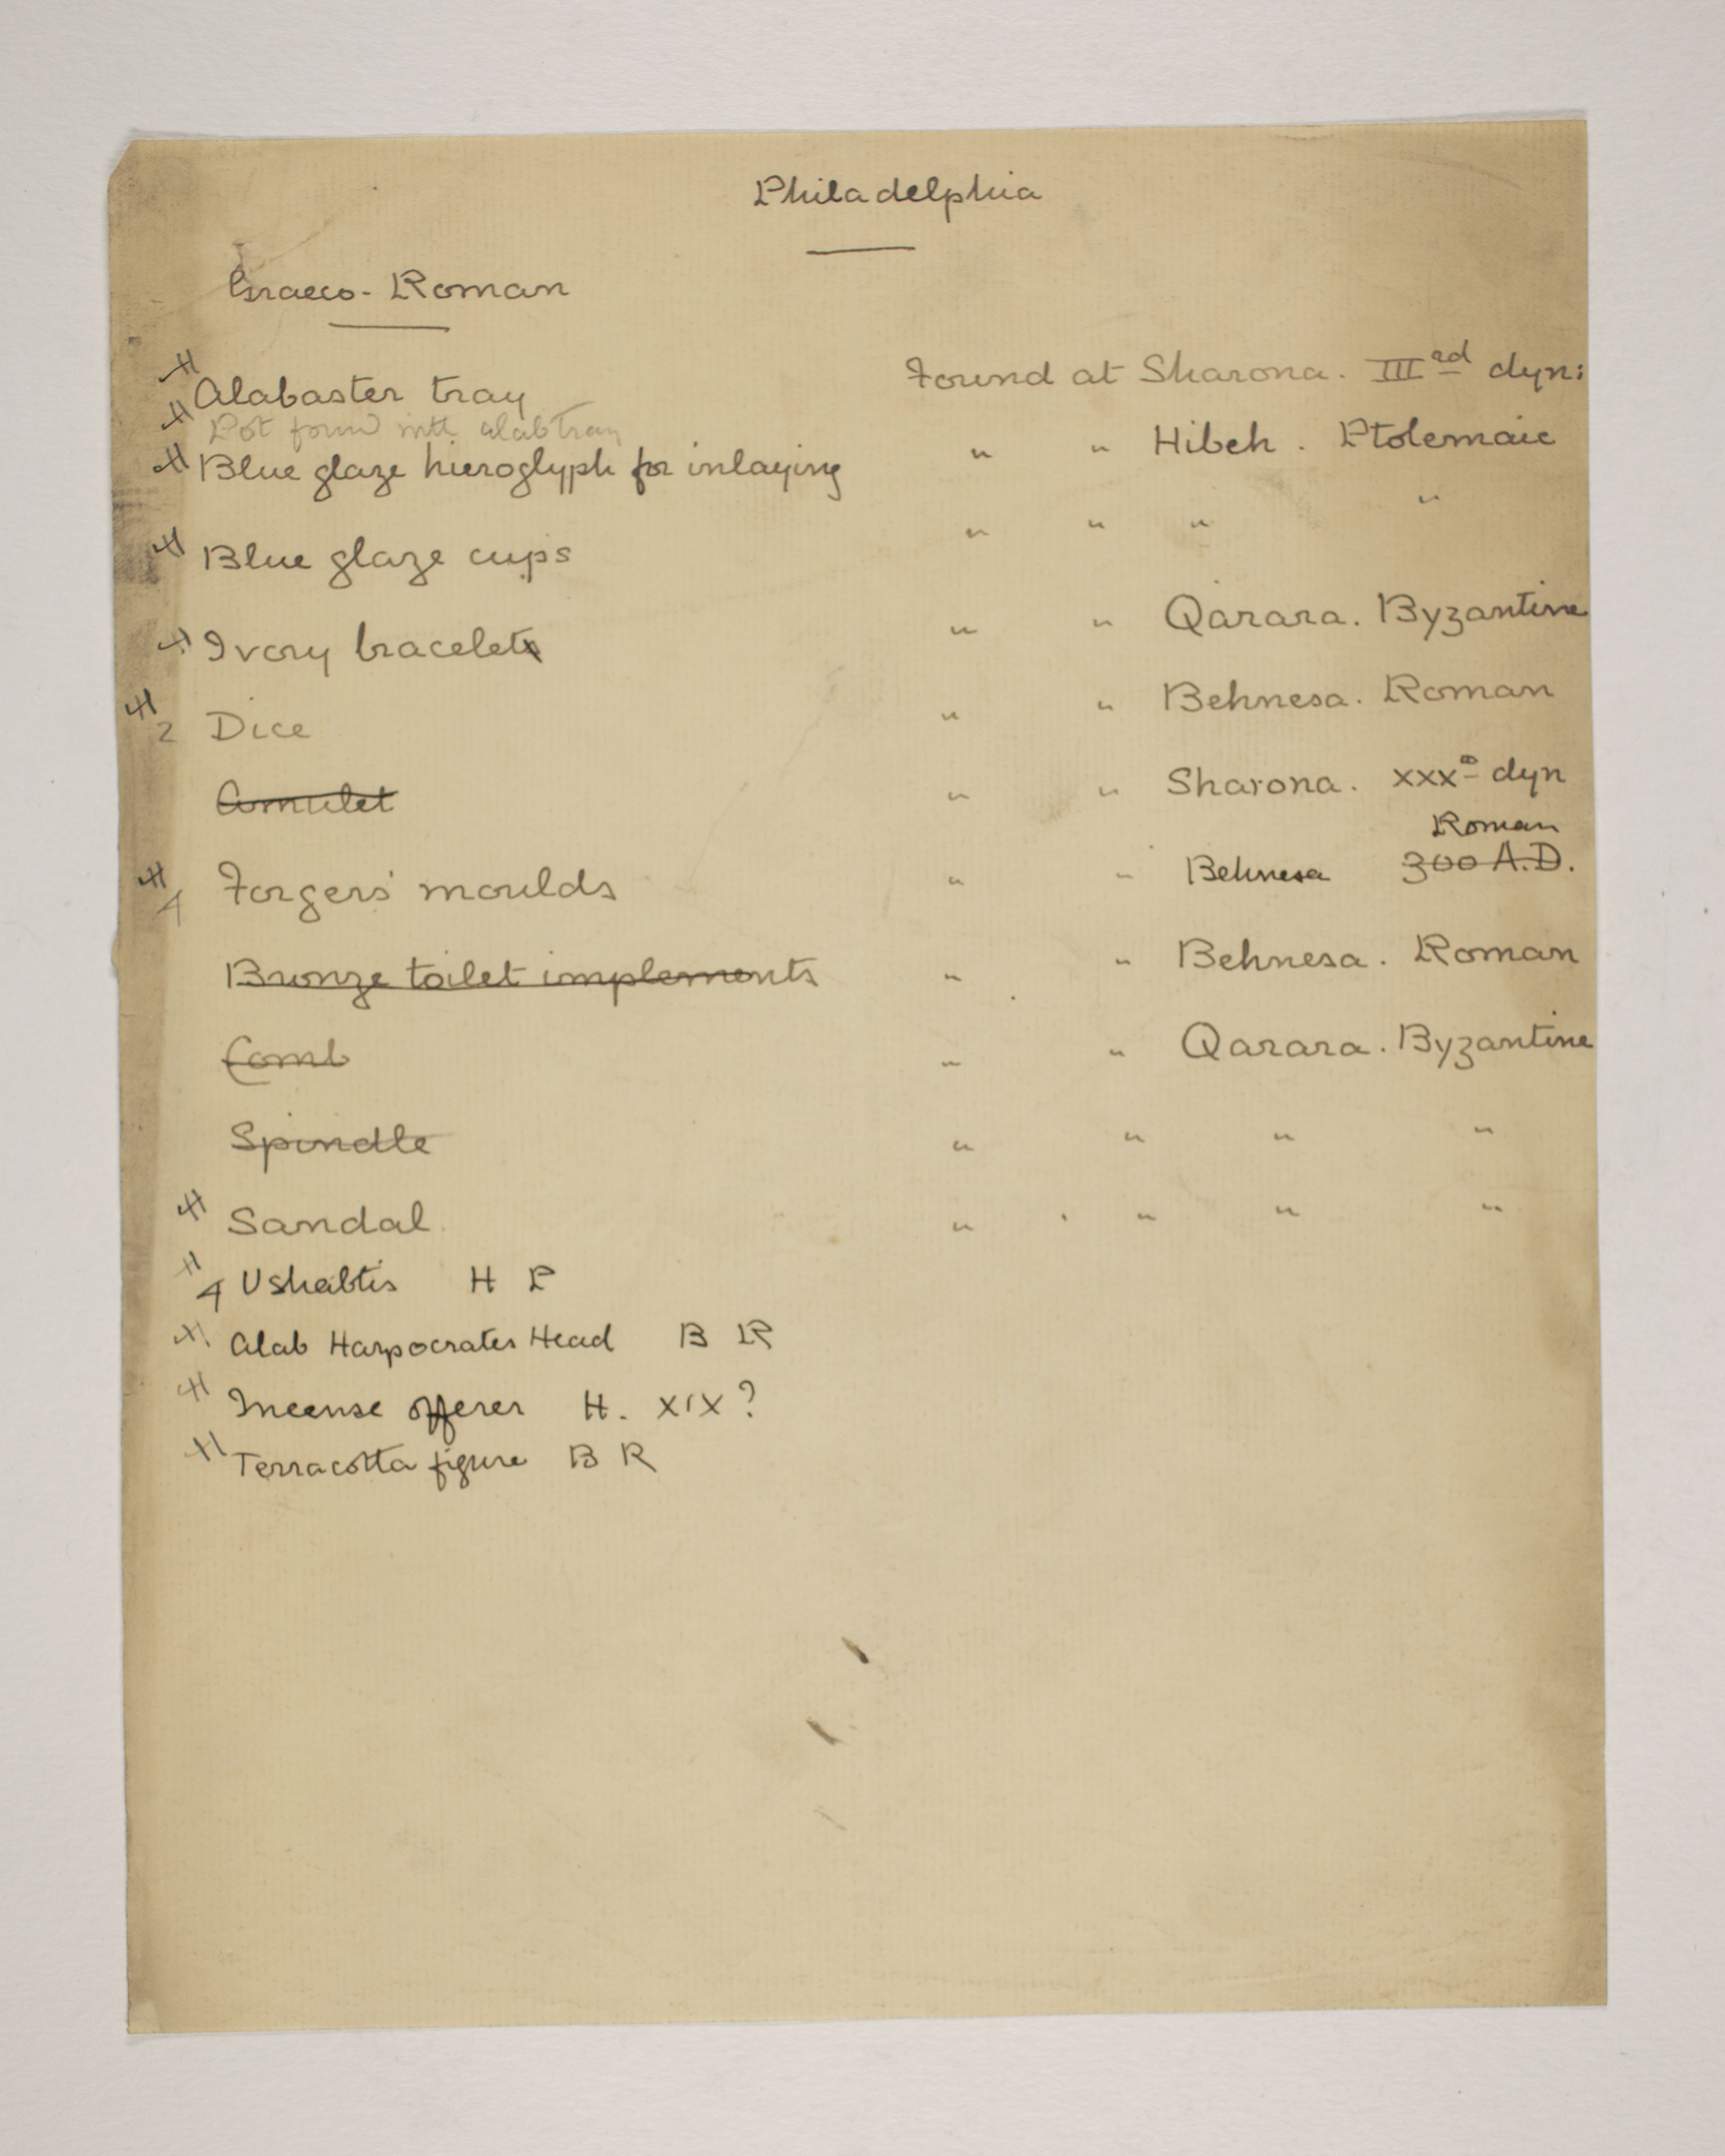 Philadelphia
Graeco-Roman
H Alabaster tray Found at Sharona. IIIrd dyn:
H Pot found with alab tray
H Blue glaze hieroglyph for inlaying " " Hibeh. Ptolemaic
H Blue glaze cups " " " "
H Ivory bracelet " " Qarara. Byzantine
H 2 Dice " " Behnesa. Roman
Amulet " " Sharona. XXXth dyn
Roman
H 4 Forgers' moulds " " Behnesa 300 A.D.
Bronze toilet implements " " Behnesa. Roman
Comb " " Qarara. Byzantine
Spindle " " " "
H Sandal " " " "
H 4 Ushabtis H P
H Alab Harpocrates Head B R
H Incense offerer H. XIX?
H Terracotta figure B R